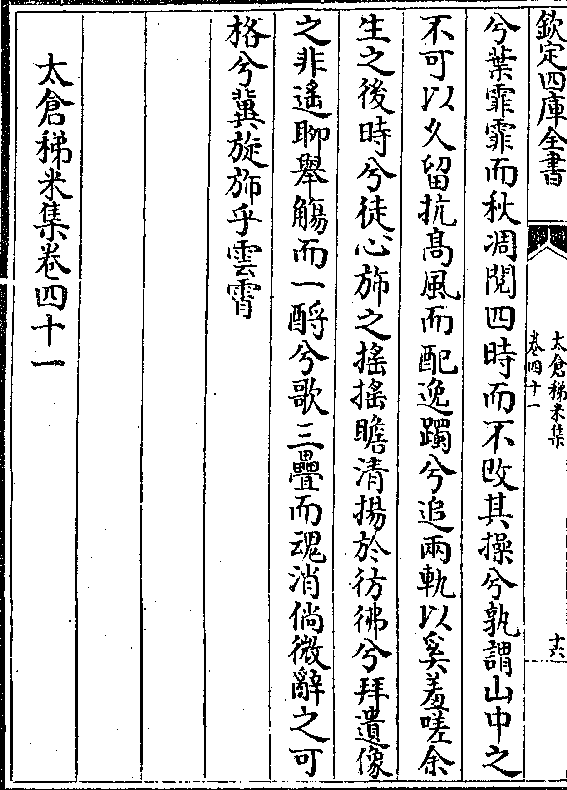 欽定四庫全書
太倉稊米集
卷四十一
十六
兮葉霏霏而秋凋閱四時而不改其操兮孰謂山中之
不可以久留抗高風而配逸躅兮追兩軌以奚羞嗟余
生之後時兮徒心斾之搖搖瞻清揚於彷彿兮拜遺像
之非遙聊舉觴而一酹兮歌三疊而魂消倘微辭之可
格兮冀旋斾乎雲霄
太倉稊米集卷四十一